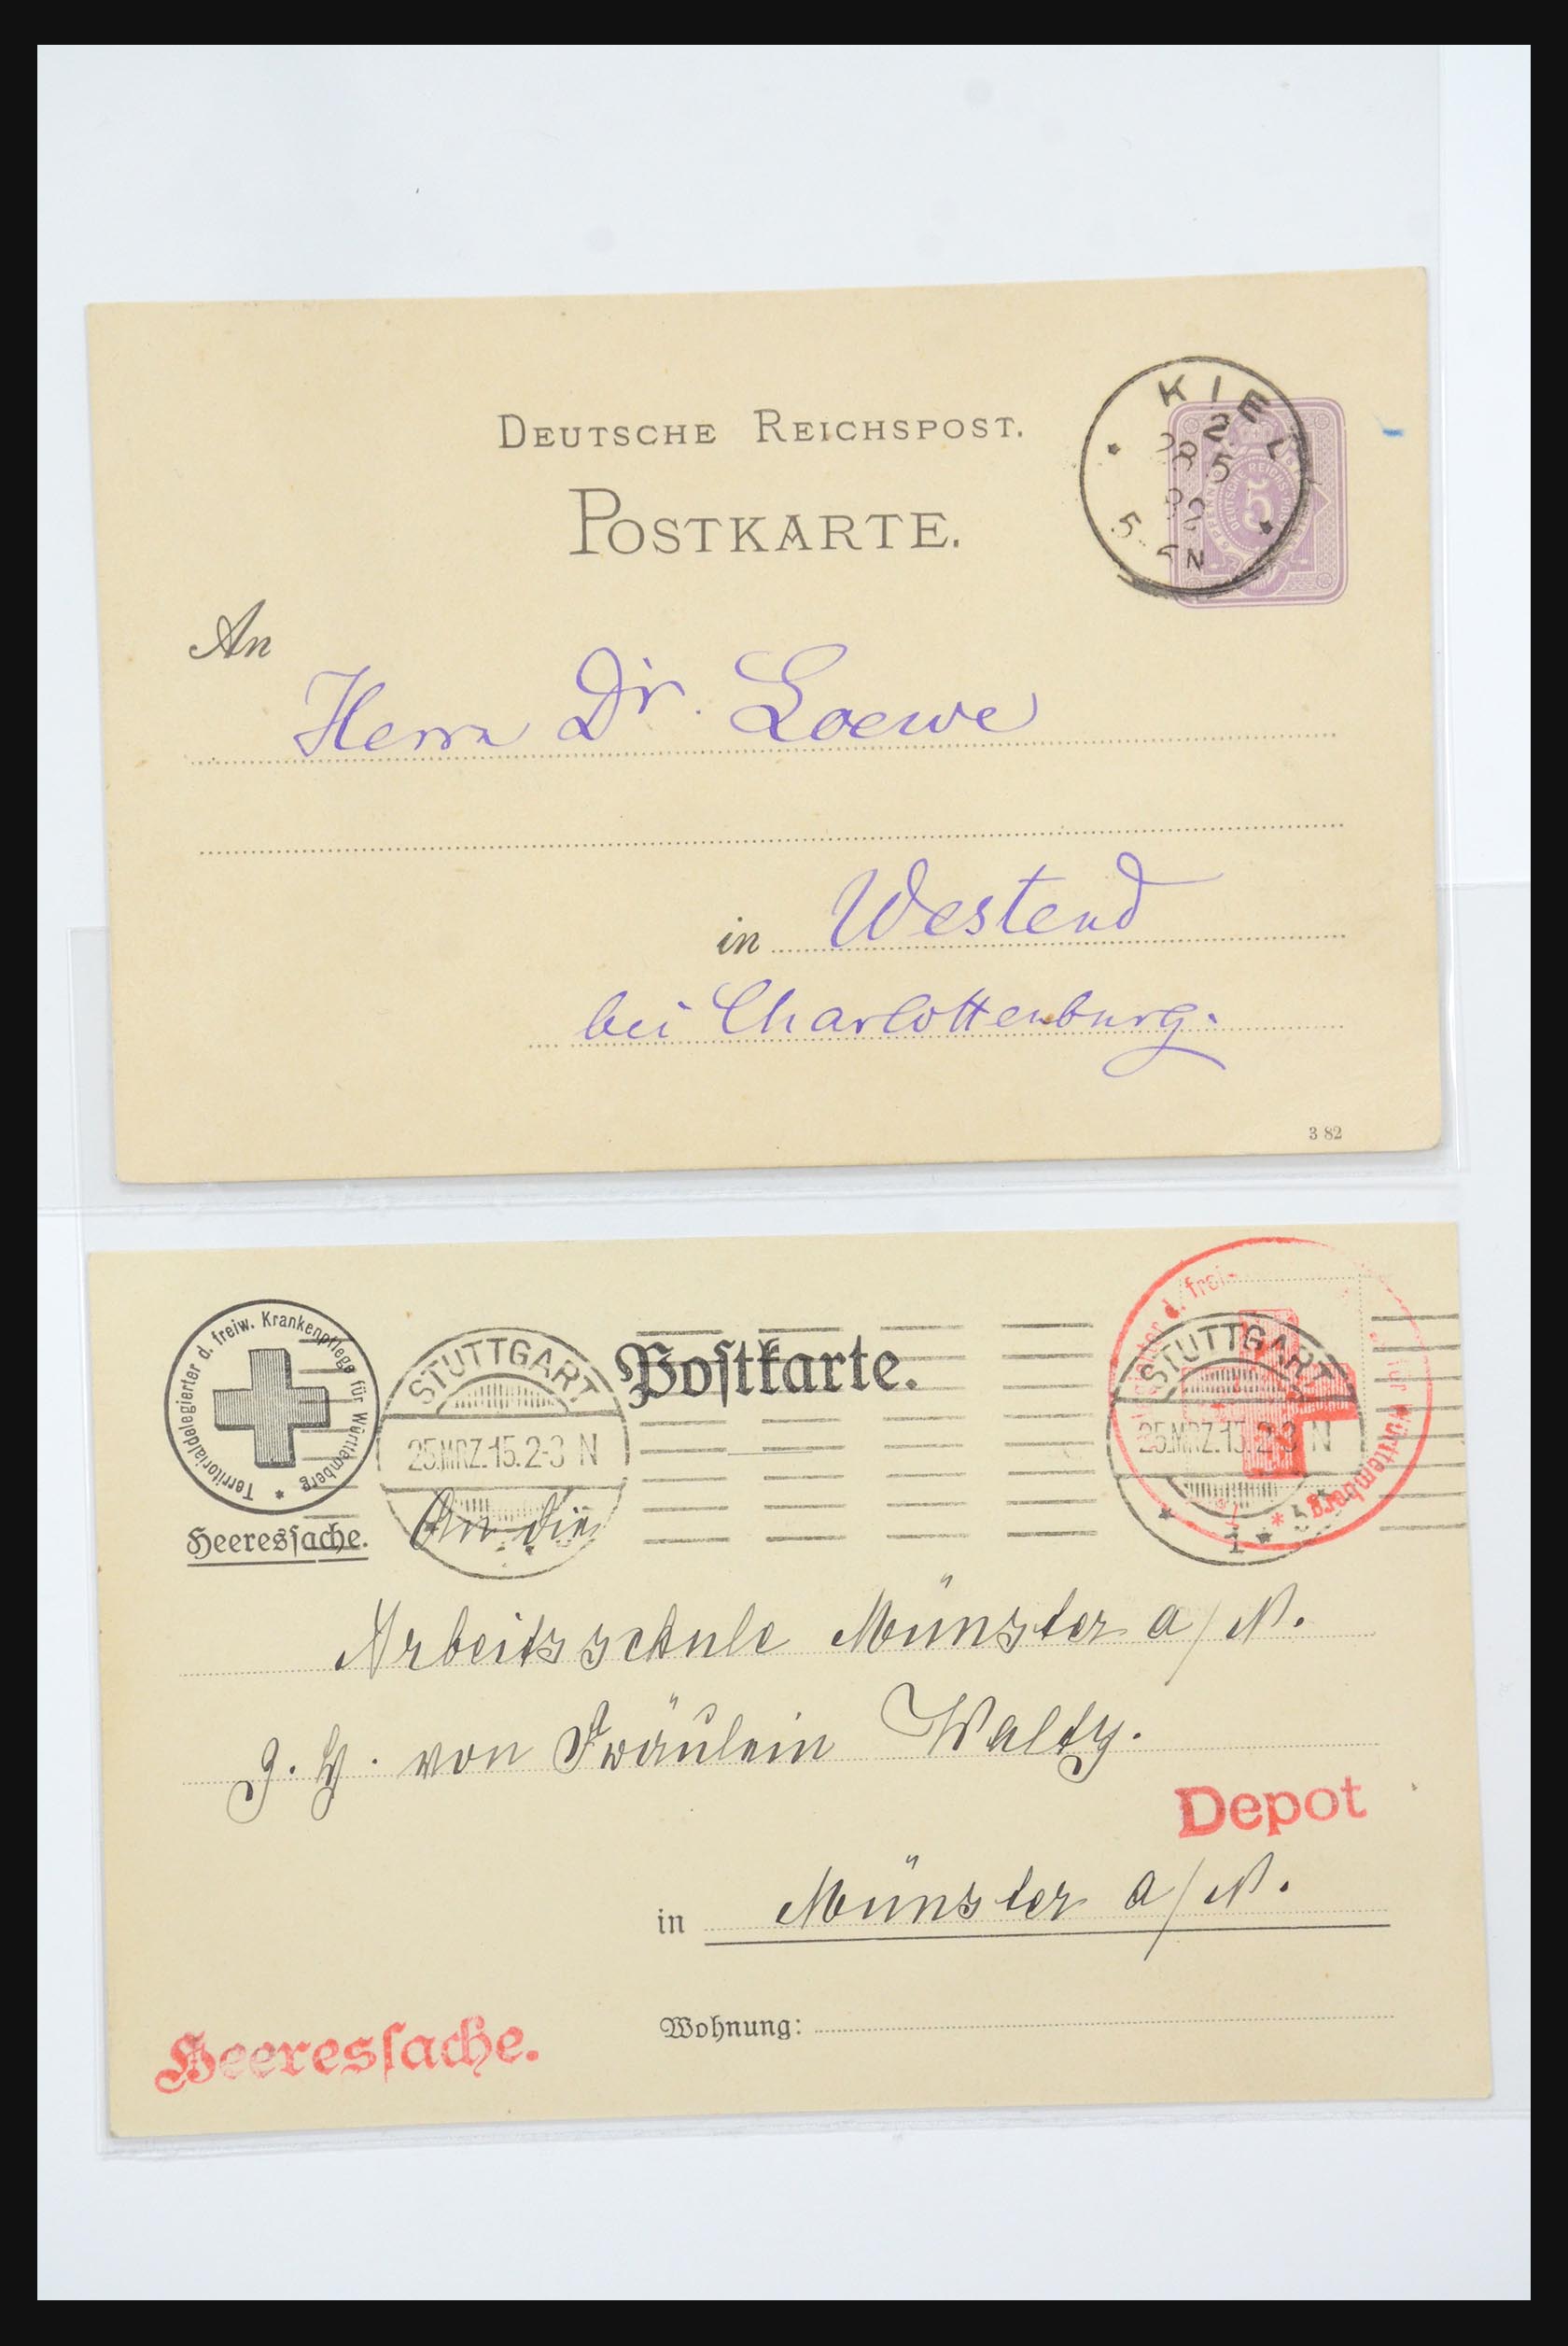 DEUTSCHE REICHSPOST.
POSTKARTE.
KIEL
5
An
Herrn Dr. Loewe
in Westend
bei Charlottenburg.
3 82
Territorialdelegierter d. freiw. Krankenpflege für Württemberg *
Heeresſache.
Poſtkarte.
STUTTGART
25.MRZ.15.2-3 N
STUTTGART
25.MRZ.15.2-3 N
1
d. frei
für Württemberg *
An die
Arbeitsschule Münster a/N.
z. H. von Fräulein Walty.
Depot
in Münster a/N.
Wohnung:
Heeresſache.